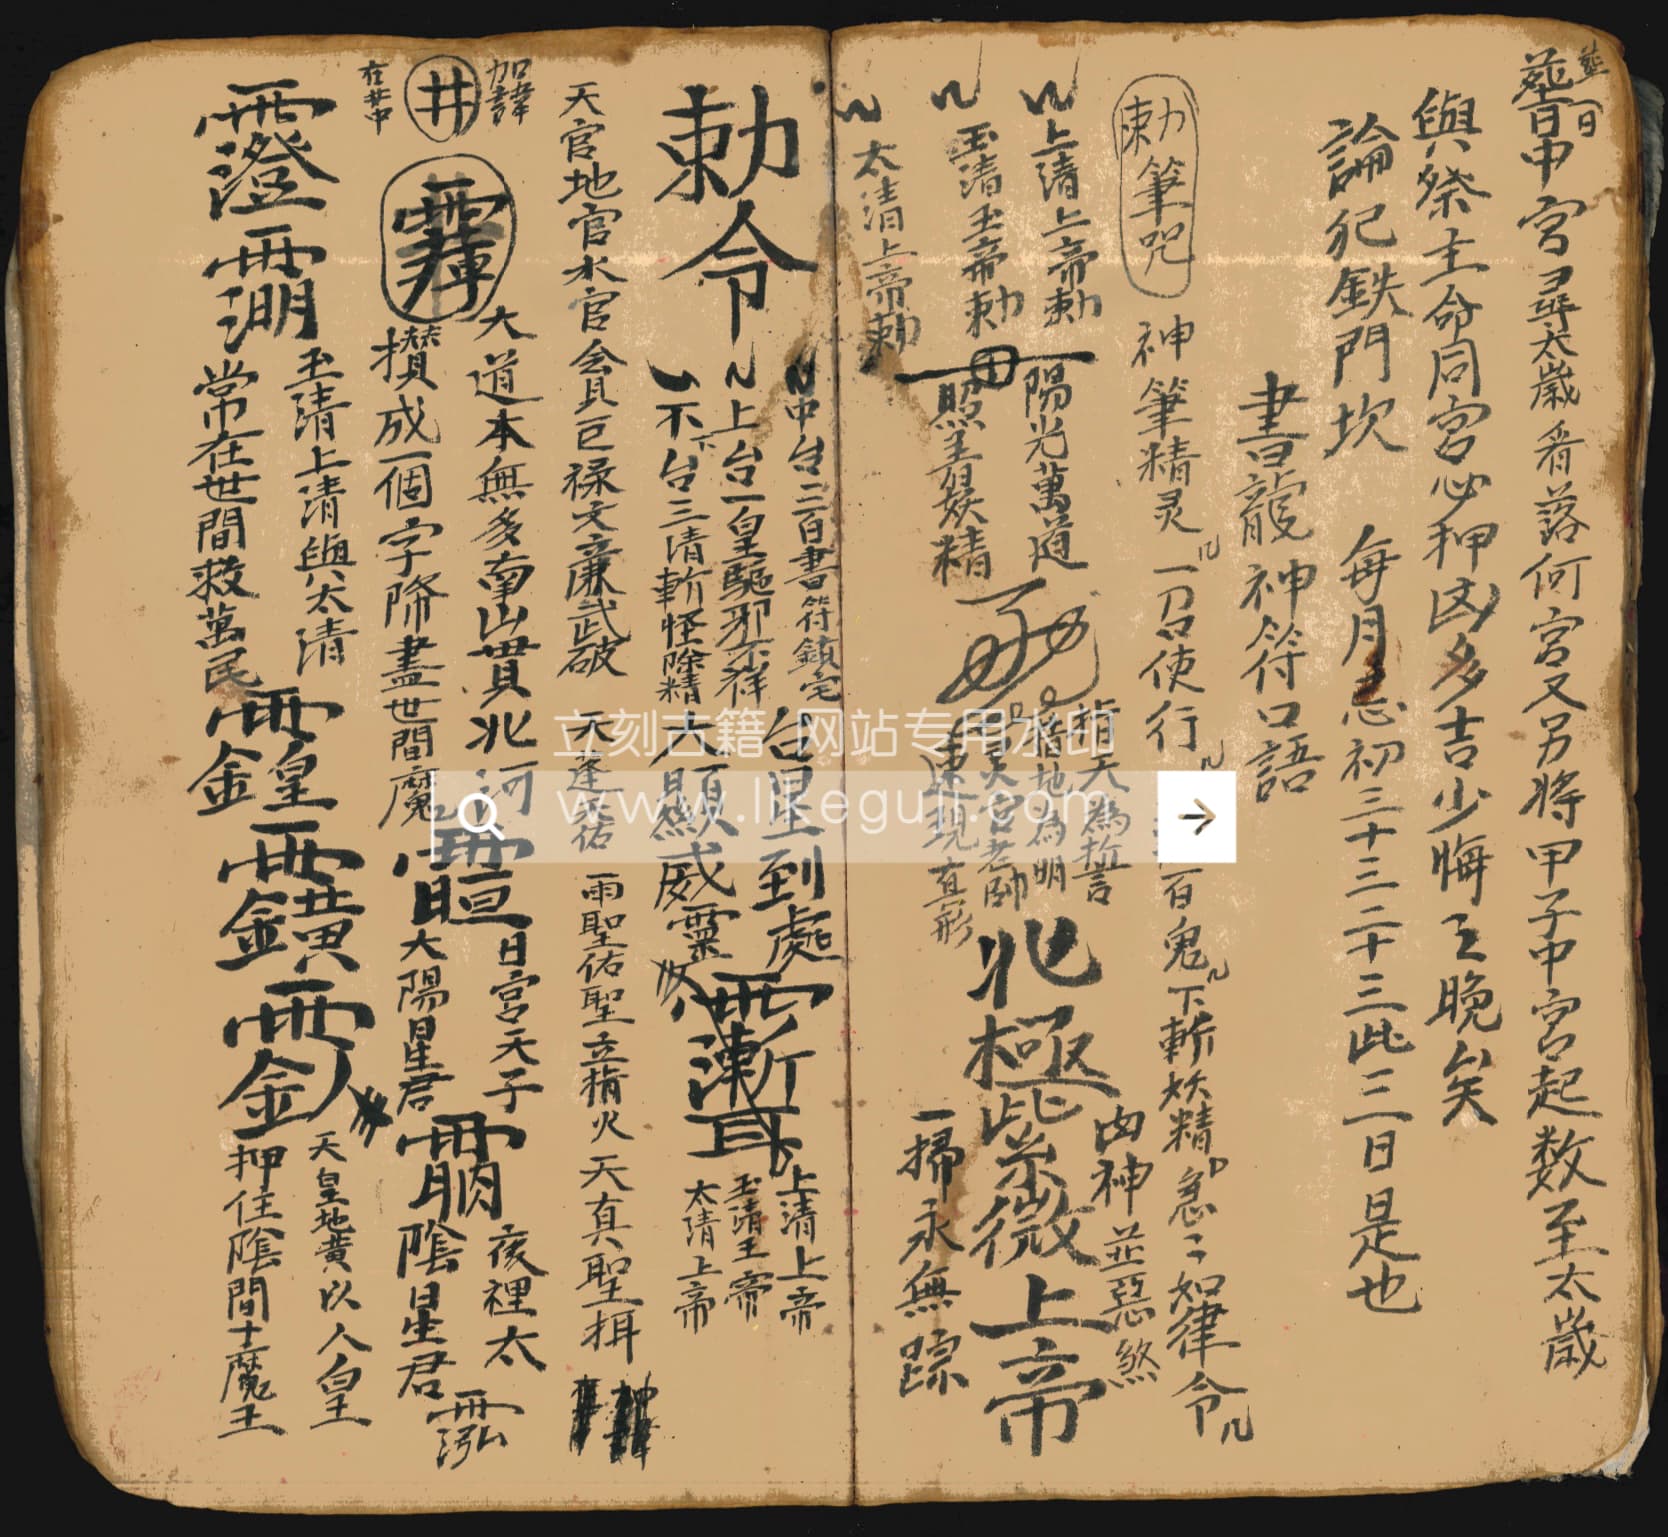 中宮尋太歲看落何宮又另將甲子中宮起数至太歲
與祭主命同宮必押凶多吉少悔之晚矣
論犯鉄門坎 每月忌初三十三二十三此三日是也
書龍神符口語
勅筆咒
神筆精灵一召使行
百鬼下斬妖精急二如律令
上清上帝勅
玉清玉帝勅
太清上帝勅
陽光萬道
照 妖精
指天為誓
指地為明
速現真形
北極紫微上帝
凶神並惡煞
一掃永無踪
勅令
中台二白書符鎮宅
上台一皇驅邪不祥
下台三清斬怪除精
台星到處
大顯威靈
上清上帝
玉清玉帝
太清上帝
天官地官水官會貝巨禄文廉武破
天蓬天佑
雨聖佑聖立指火天真聖揖
加諱
井
在井中
大道本無多南山貫北河
攅成一個字降盡世間魔
日宮天子
太陽星君
夜裡太
陰星君
玉清上清與太清
常在世間救萬民
天皇地黃以人皇
押住陰間十魔王
立刻古籍 网站专用水印
www.likeguji.com